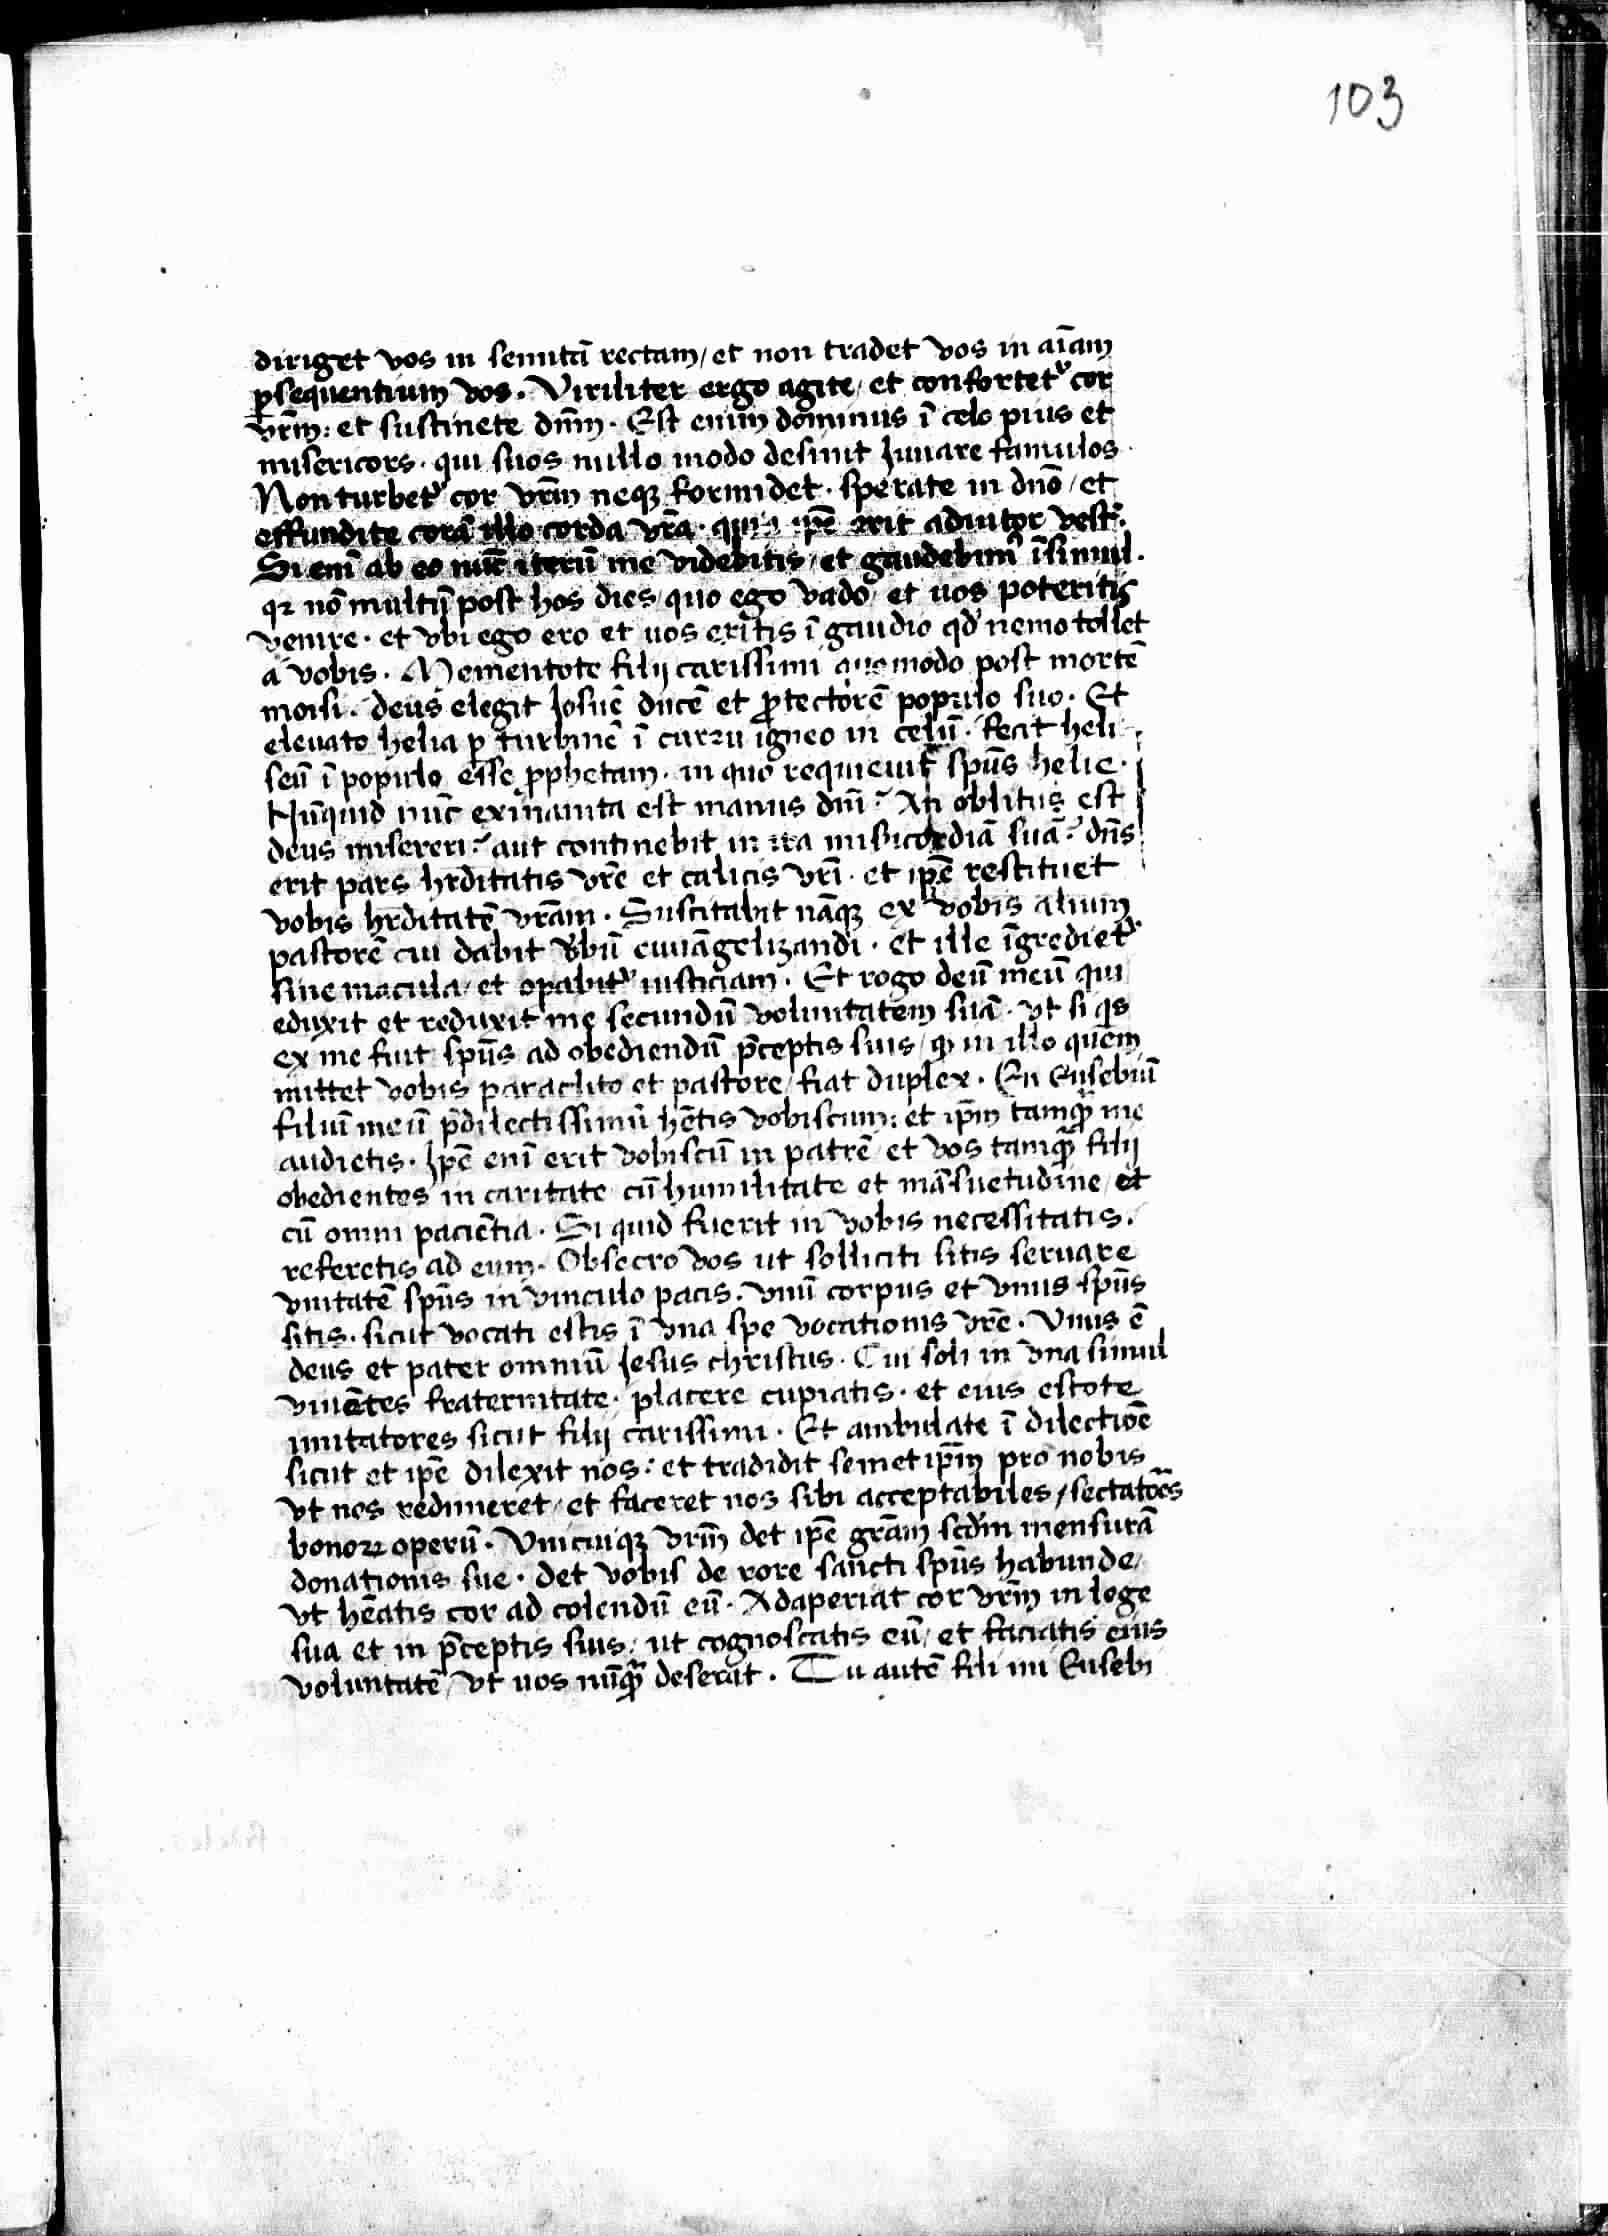 103
diriget vos in semitā rectam / et non tradet vos in aīam
ꝑsequentium vos . Viriliter ergo agite / et confortet᷒ cor
vr̄m : et sustinete dn̄m . Est enim dominus ī celo pius et
misericors . qui suos nullo modo desinit Juuare famulos .
Non turbet᷒ cor vr̄m neqꝫ formidet . sperate in dn̄o / et
effundite corā illo corda vr̄a . quia ip̄e erit adiutor vest᷒ .
Si em̄ ab eo nūc iterū me videbitis / et gaudebimꝰ īsimul .
qꝛ nō multū post hos dies / quo ego vado / et uos poteritis
venire . et vbi ego ero et uos eritis ī gaudio qd̓ nemo tollet
a vobis . Mementote filij carissimi quomodo post mortē
moisi . deus elegit Josuē ducē et ꝓtectorē populo suo . Et
eleuato helia ꝑ turbinē ī curru igneo in celū . fecit heli
seū ī populo esse ꝓphetam . in quo requieuit sp̄us helie .
Nūquid nūc exinanita est manus dn̄i ? An oblitus est
deus misereri ? aut continebit in ira mīsicordiā suā ? dn̄s
erit pars hr̄ditatis vr̄e et calicis vr̄i . et ip̄e restituet
vobis hr̄ditatē vr̄am . Suscitabit nāqꝫ ex vobis alium
pastorē cui dabit v̓bū euuāgelizandi . et ille īgrediet᷒
sine macula / et oꝑabit᷒ iusticiam . Et rogo deū meū qui
eduxit et reduxit me secundū voluntatem suā . vt si qͥs
ex me fuit sp̄us ad obediendū p̄ceptis suis / qͥ in illo quem
mittet vobis paraclito et pastore / fiat duplex . En Eusebiū
filiū meū p̄dilectissimū hētis vobiscum : et ip̄m tamqͣ me
audietis . Ip̄e enī erit vobiscū in patrē / et vos tamqͣ filij
obedientes in caritate cū humilitate et māsuetudine / et
cū omni paciētia . Si quid fuerit in vobis necessitatis .
referetis ad eum . Obsecro vos ut solliciti sitis seruare
vnitatē sp̄us in vinculo pacis . vnū corpus et vnus sp̄us
sitis . sicut vocati estis ī vna spe vocationis vr̄e . Vnus ē
deus et pater omniū Jesus christus . Cui soli in vna simul
viuētes fraternitate . placere cupiatis . et eius estote
imitatores sicut filij carissimi . Et ambulate ī dilectiōe
sicut et ip̄e dilexit nos : et tradidit semetip̄m pro nobis
vt nos redimeret / et faceret nos sibi acceptabiles / sectatōes
bonoꝝ operū . Vnicuiqꝫ vr̄m det ip̄e gr̄am scd̓m mensurā
donationis sue . det vobis de rore sancti sp̄us habunde /
vt hēatis cor ad colendū eū . Adaperiat cor vr̄m in lege
sua et in p̄ceptis suis / ut cognoscatis eū / et faciatis eius
voluntatē / vt uos nūqͣ deserat . Tu autē fili mi Eusebi